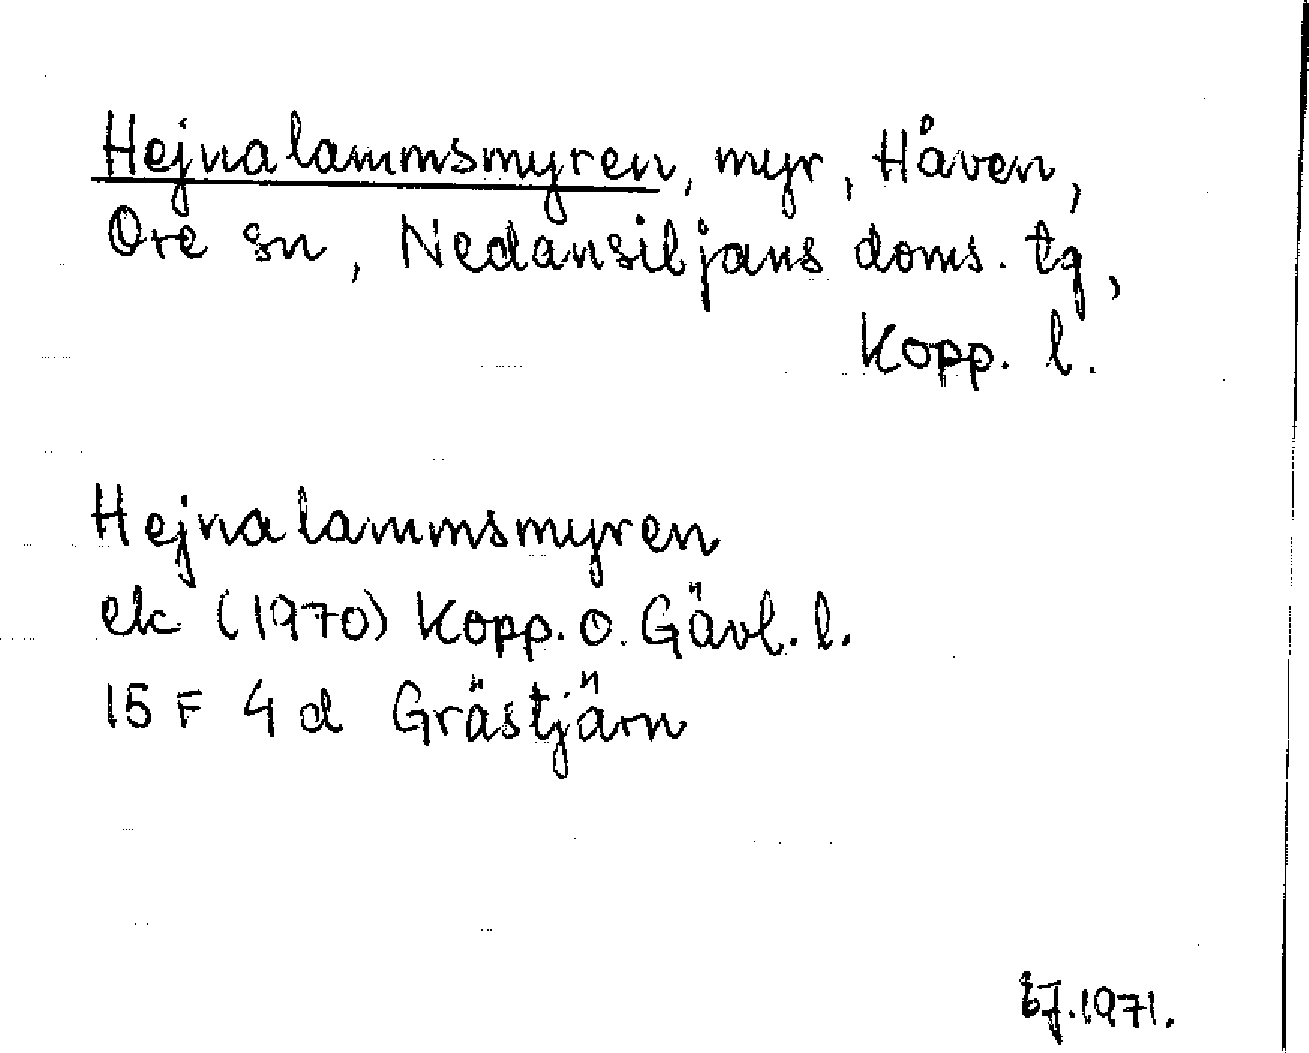 Hejnalammsmyren, myr, Håven,
Ore sn, Nedansiljans doms. tg,
Kopp. l.
Hejnalammsmyren
ek (1970) Kopp. o. Gävl. l.
15 F 4 d Grästjärn
EJ. 1971.